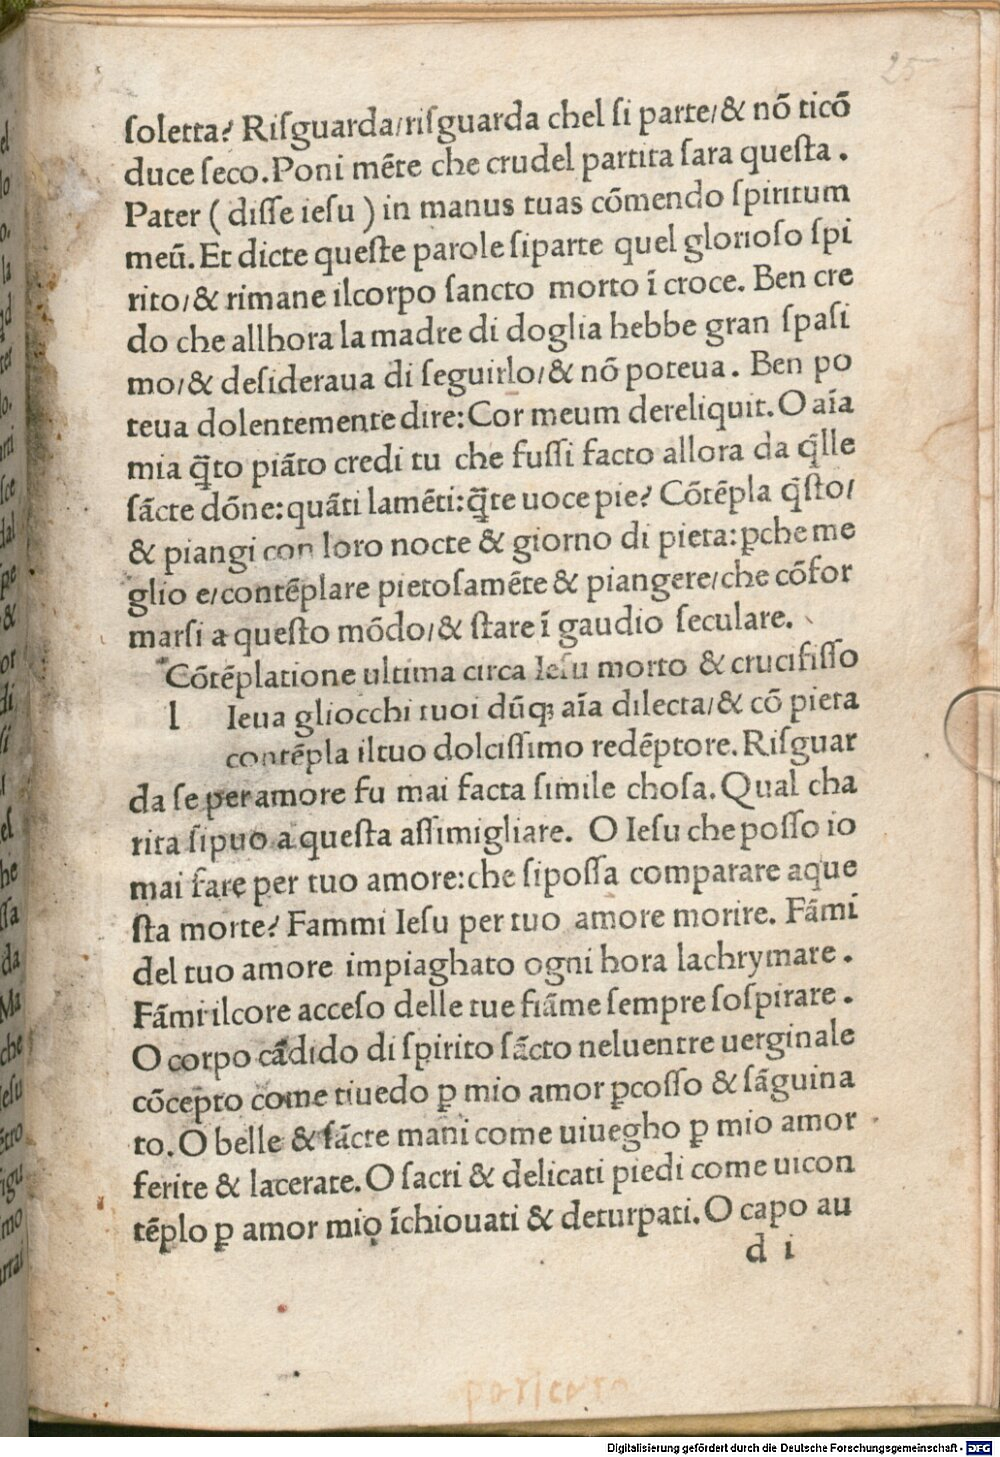 25
ſoletta? Riſguarda/riſguarda chel ſi parte/& nõ ticõ
duce ſeco. Poni mẽte che crudel partita ſara queſta.
Pater (diſſe ieſu) in manus tuas cõmendo ſpiritum
meũ. Et dicte queſte parole ſiparte quel glorioſo ſpi
rito/& rimane ilcorpo ſancto morto ĩ croce. Ben cre
do che allhora la madre di doglia hebbe gran ſpaſi
mo/& deſideraua di ſeguirlo/& nõ poteua. Ben po
teua dolentemente dire: Cor meum dereliquit. O aĩa
mia q̃to piãto credi tu che fuſſi facto allora da q̃lle
ſãcte dõne: quãti lamẽti: q̃te uoce pie? Cõtẽpla q̃ſto/
& piangi con loro nocte & giorno di pieta: ꝑche me
glio e/contẽplare pietoſamẽte & piangere/che cõfor
marſi a queſto mõdo/& ſtare ĩ gaudio ſeculare.
Cõtẽplatione ultima circa Ieſu morto & crucifiſſo
l Ieua gliocchi tuoi dũqꝫ aĩa dilecta/& cõ pieta
contẽpla iltuo dolciſſimo redẽptore. Riſguar
da ſe per amore fu mai facta ſimile choſa. Qual cha
rita ſipuo a queſta aſſimigliare. O Ieſu che poſſo io
mai fare per tuo amore: che ſipoſſa comparare aque
ſta morte? Fammi Ieſu per tuo amore morire. Fãmi
del tuo amore impiaghato ogni hora lachrymare.
Fãmi ilcore acceſo delle tue fiãme ſempre ſoſpirare.
O corpo cãdido di ſpirito ſãcto neluentre uerginale
cõcepto come tiuedo ꝑ mio amor ꝑcoſſo & ſãguina
to. O belle & ſãcte mani come uiuegho ꝑ mio amor
ferite & lacerate. O ſacri & delicati piedi come uicon
tẽplo ꝑ amor mio ĩchiouati & deturpati. O capo au
d i
Digitalisierung gefördert durch die Deutsche Forschungsgemeinschaft - DFG